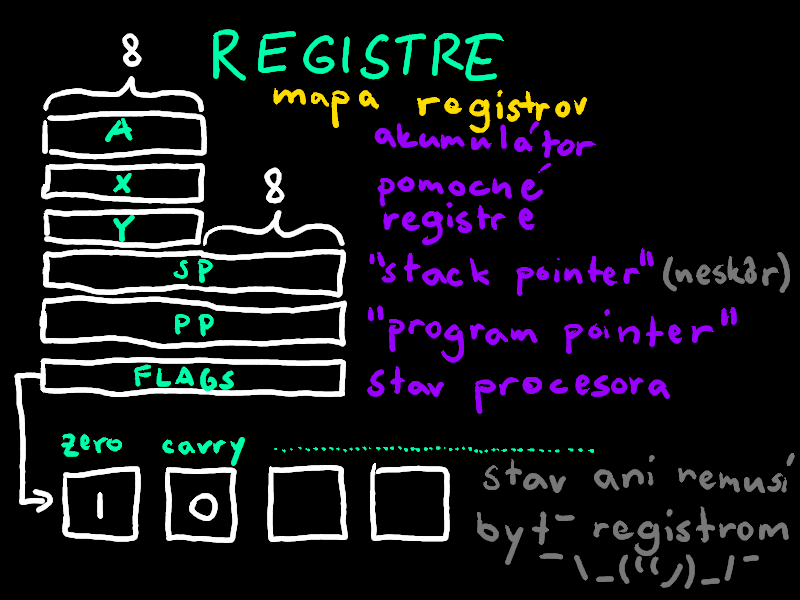 8
REGISTRE
mapa registrov
A
akumulátor
X
pomocné
Y
registre
8
SP
"stack pointer" (neskôr)
PP
"program pointer"
FLAGS
stav procesora
zero carry ..............................
1 0
stav ani nemusí
byť registrom
¯\_(ツ)_/¯